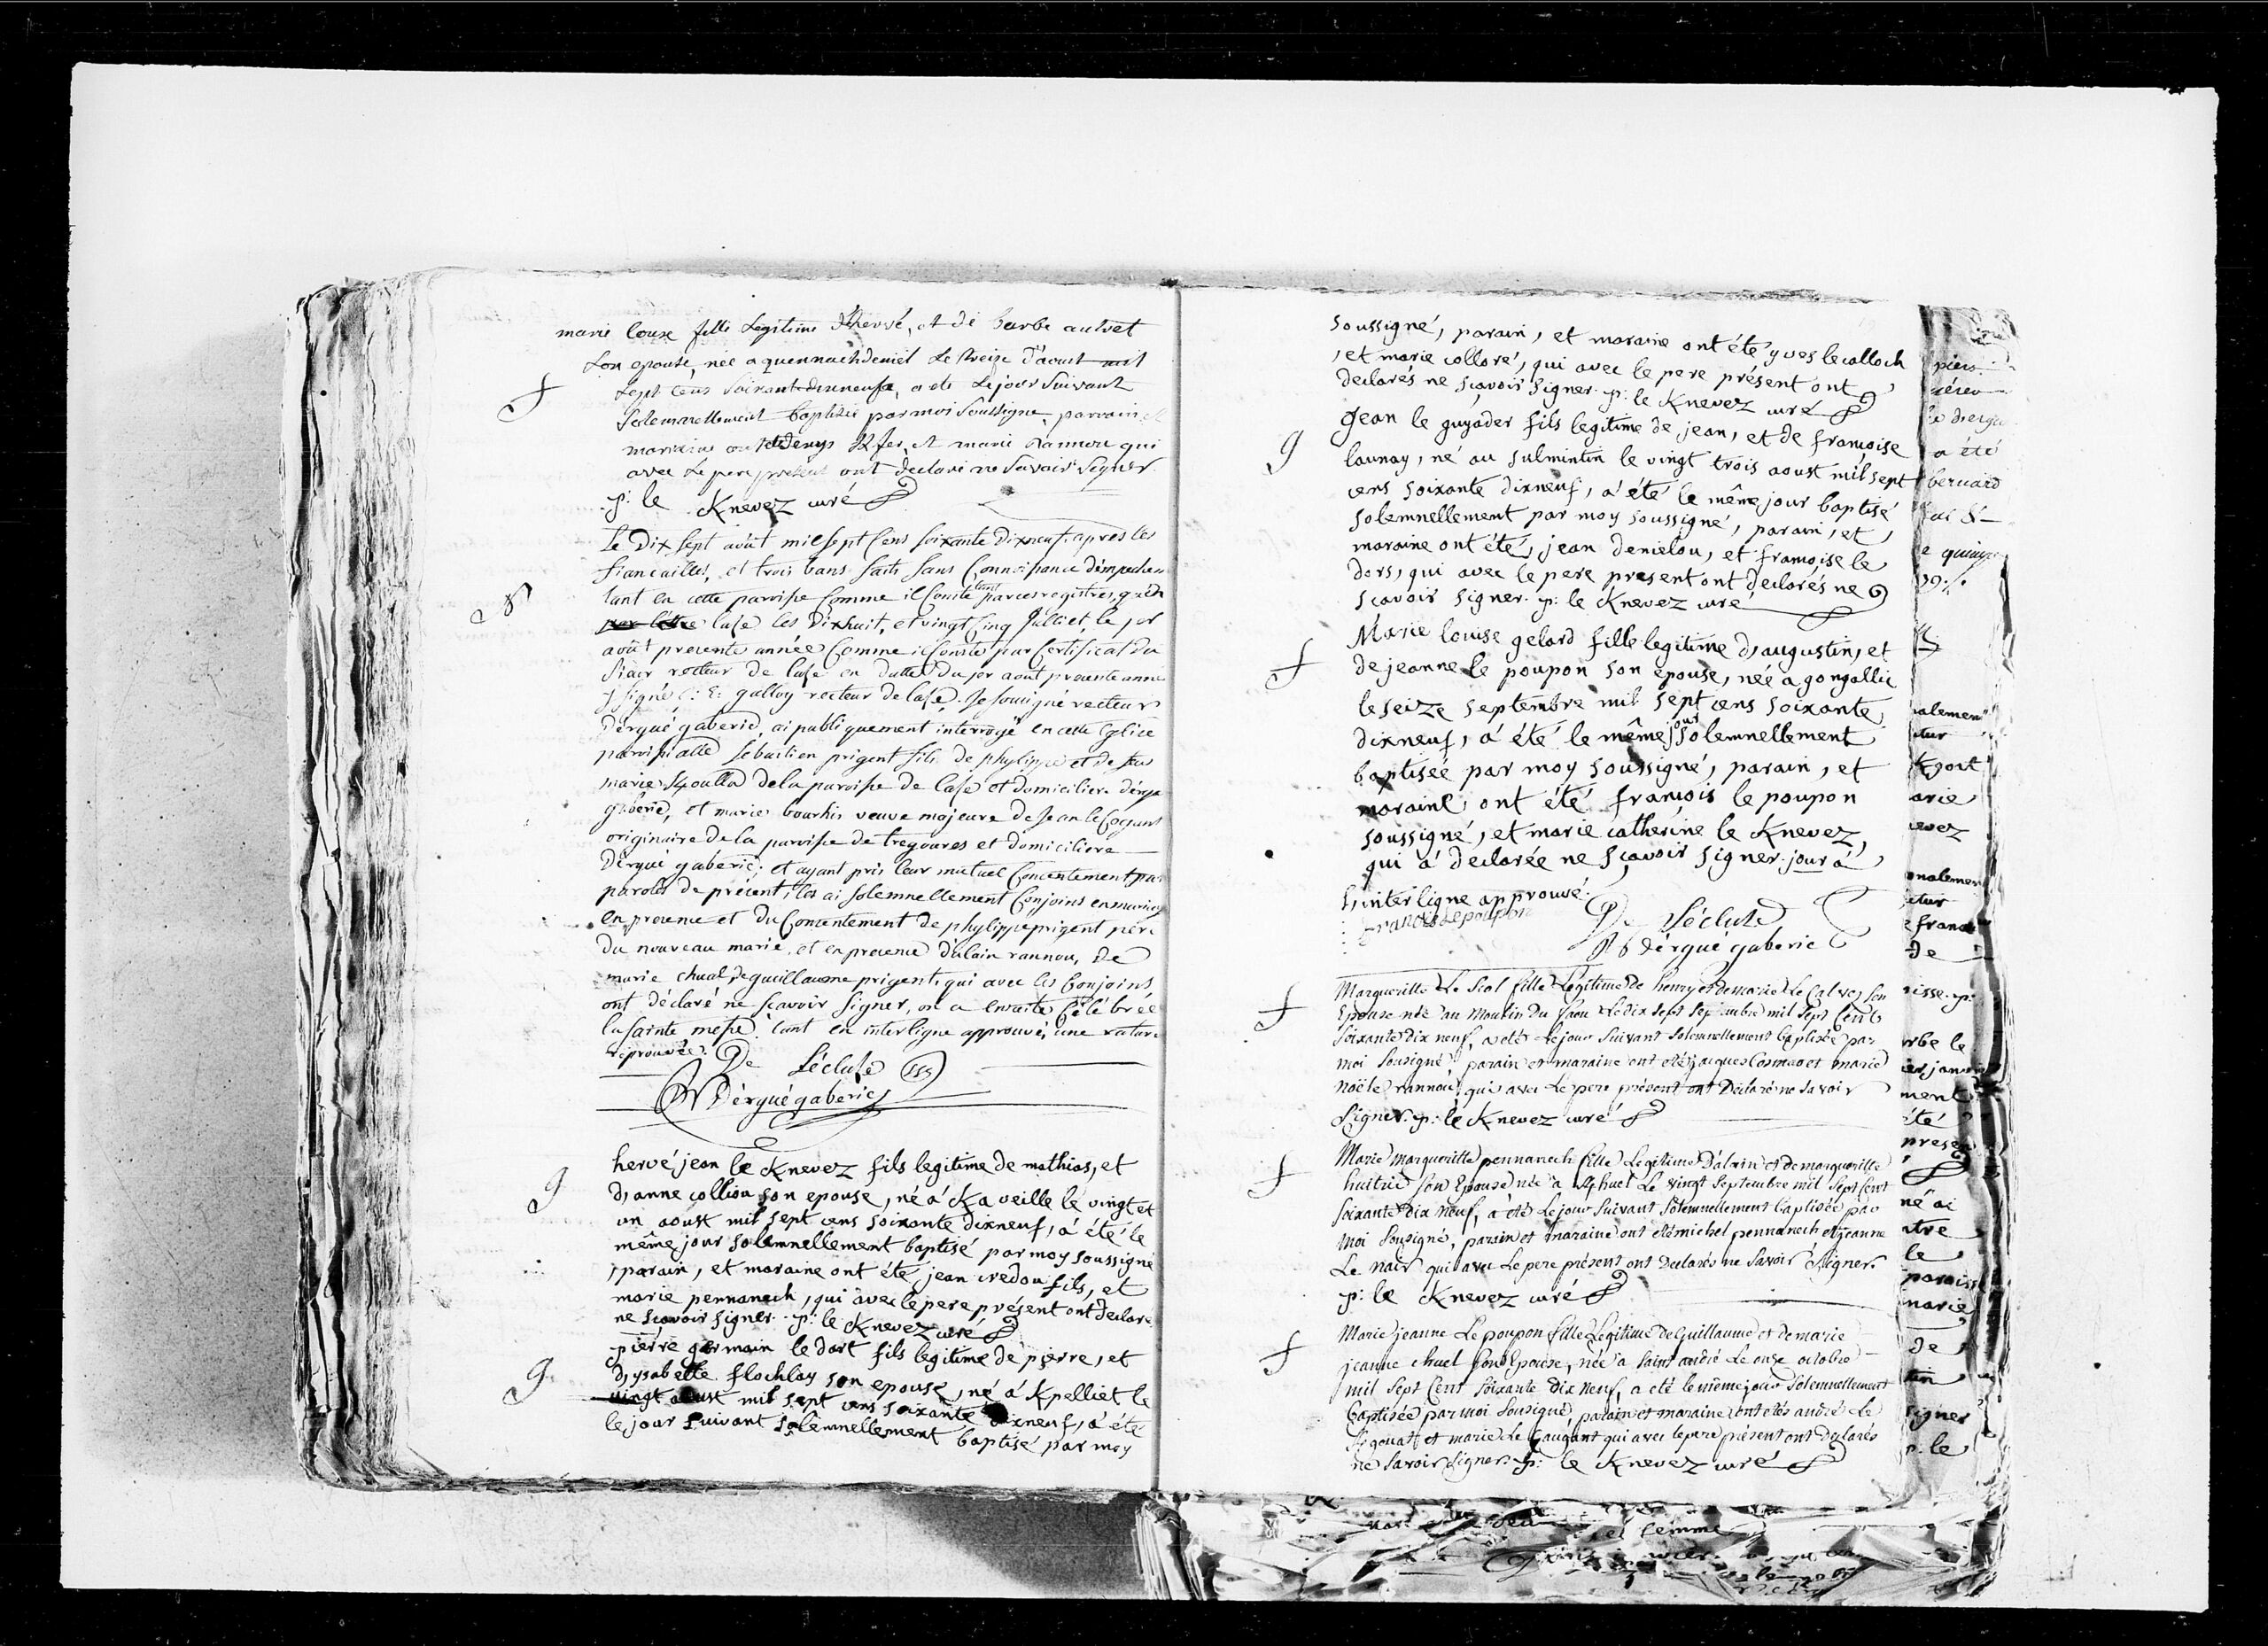 marie Coux fille Legitime d'hervé, et de barbe autret
Son epouse, née a quennachdeniel Le treize d'aoust mil
f
Sept Cens Soixante dixneuf, a eté Le jour Suivant
Solemnellement baptisée par moi Soussigné, parrain et
marraine ont eté denys et marie qui
avec Le pere present ont declaré ne Savoir Signer
p: le Knevez curé
Le Dix Sept août mil Sept Cens Soixante Dixneuf. apres les
fiancailles, et trois bans faits sans Connoissance dempechem
M
tant en cette paroisse Comme il Conste tant par ces registres, qu'en
par l'etre Case les Dixhuit, et vingt Cinq Juilliet, le jer
août presente année Comme il Conste par Certificat du
Sieur recteur de Case en datte du jer août presente année
signé : galloy recteur de Case. Je souigné recteur
Dérgué gaberic, ai publiquement interrogé en cette Eglise
paroissialle Sebastien prigent fils de phylippe et de feue
marie de la paroisse de Case et domicilier dérgue
gaberic, et marie bourhis veuve majeure de Jean le Cogant
originaire de la paroisse de tregoures et domiciliere
Dérgué gaberic; et ayant pris leur mutuel Consentement par
paroles de présent, les ai Solemnellement Conjoins en mariage
en presence et du Consentement de phylippe prigent pere
du nouveau marié, et en presence d'alain rannou, De
marie chual, de guillaume prigent, qui avec les Conjoins
ont déclaré ne sçavoir signer, on a ensuite Célébrée
la sainte messe. tant en interligne approuvé, une rature
réprouvée. De Lécluse
Dérgué gaberic
hervé jean le Knevez fils legitime de mathias, et
g
d, anne colliou son epouse, né á Ka veille le vingt et
un aoust mil sept cens soixante dixneuf, á été le
même jour solemnellement baptisé par moy soussigné
, parain, et maraine ont été jean credou fils, et
marie pennanech, qui avec le pere présent ont declaré
ne sçavoir signer. p: le Knevez curé
pierre germain le dort fils legitime de pierre, et
g
d, ysabelle flochlay son epouse, né á Kpelliet le
vingt aoust mil sept cens soixante dixneuf, á été
le jour suivant solemnellement baptisé par moy
soussigné, parain, et maraine ont été yves le calloch
, et marie colloré, qui avec le pere présent ont
declarés ne sçavoir signer. p: le Knevez curé
g
jean le guyader fils legitime de jean, et de françoise
launay, né au sulmintin le vingt trois aoust mil sept
cens soixante dixneuf, á été le même jour baptisé
solemnellement par moy soussigné, parain, et
maraine ont été, jean denielou, et françoise le
dors, qui avec le pere present ont declarés ne
sçavoir signer. p: le Knevez curé
Marie louise gelard fille legitime d, augustin, et
f
de jeanne le poupon son epouse, née a gongallic
le seize septembre mil sept cens soixante
dixneuf, á été le même jour solemnellement
baptisée par moy soussigné, parain, et
maraine ont été françois le poupon
soussigné, et marie catherine le Knevez,
qui á declarée ne sçavoir signer. jour á
l, interligne approuvé.
francois Le poupon
De Lécluse
dérgué gaberic
Margueritte Le Scol fille Légitime de henry et de marie Le Calvez Son
f
Epouse née au Moulin Du faou Le dix Sept Septembre mil Sept Cent
Soixante Dix neuf, a eté Le jour Suivant Solemnellement baptisée par
moi Sousigné, parain et maraine ont eté jacques Cosmao et marie
noële rannou, qui avec Le pere présent ont Declaré ne Savoir
Signer. p: le Knevez curé
Marie margueritte pennanech fille Légitime D'alain et de margueritte
f
huitric Son Epouse née a Le vingt Septembre mil Sept Cent
Soixante Dix Neuf, a été Le jour Suivant Solemnellement baptisée par
moi Sousigné, parain et maraine ont eté michel pennanech et jeanne
Le nair qui avec Le pere présent ont Declarés ne Savoir Signer.
p: le Knevez curé
Marie jeanne Le poupon fille Légitime De Guillaume et de marie
f
jeanne chuet son Epouse, née a Saint andré Le onze octobre
mil Sept Cent Soixante Dix Neuf, a eté le même jour Solemnellement
baptisée par moi Sousigné, parain et maraine ont etés andré Le
et marie Le Gaugant qui avec le pere présent ont declarés
ne Savoir Signer. p: le Knevez curé
a été
bernard
le franc
De
ment
été
né ai
le
paroiss
marie
De
signer
p. le
et femme